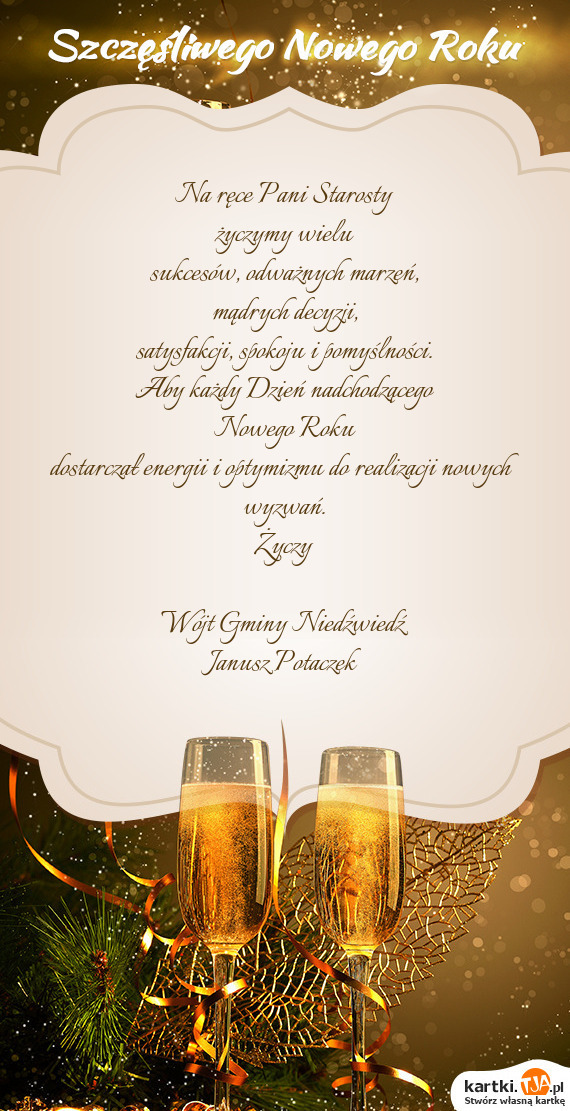 Szczęśliwego Nowego Roku
Na ręce Pani Starosty
życzymy wielu
sukcesów, odważnych marzeń,
mądrych decyzji,
satysfakcji, spokoju i pomyślności.
Aby każdy Dzień nadchodzącego
Nowego Roku
dostarczał energii i optymizmu do realizacji nowych
wyzwań.
Życzy
Wójt Gminy Niedźwiedź
Janusz Potaczek
kartki.TJA.pl
Stwórz własną kartkę